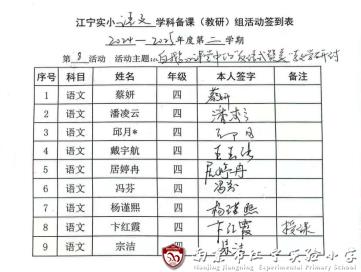 江宁实小 语文 学科备课（教研）组活动签到表
2024—2025年度第二学期
第 8 活动 活动主题：
序号 科目 姓名 年级 本人签字 备注
1 语文 蔡妍 四 蔡妍
2 语文 潘凌云 四
3 语文 邱月* 四
4 语文 戴宇航 四
5 语文 居婷冉 四 居婷冉
6 语文 冯芬 四 冯芬
7 语文 杨谨熙 四 杨谨熙
8 语文 卞红霞 四 卞红霞 授课
9 语文 宗洁 四
南京市江宁实验小学
Nanjing Jiangning Experimental Primary School